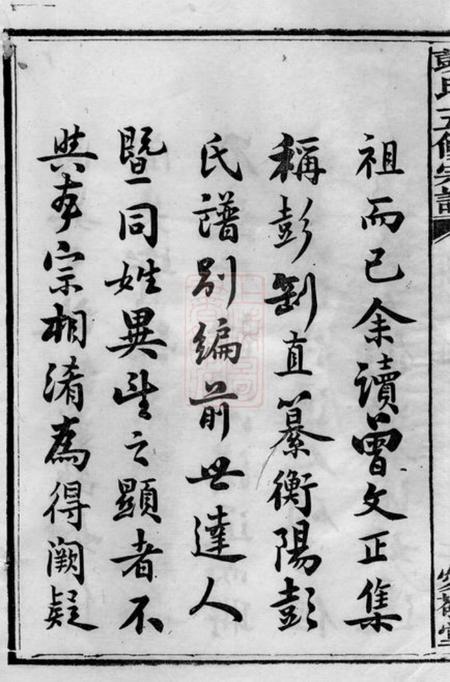 彭氏五修宗譜
祖而已余讀曾文正集
稱彭剛直纂衡陽彭
氏譜別編前世達人
暨同姓異望之顯者不
與本宗相淆為得闕疑